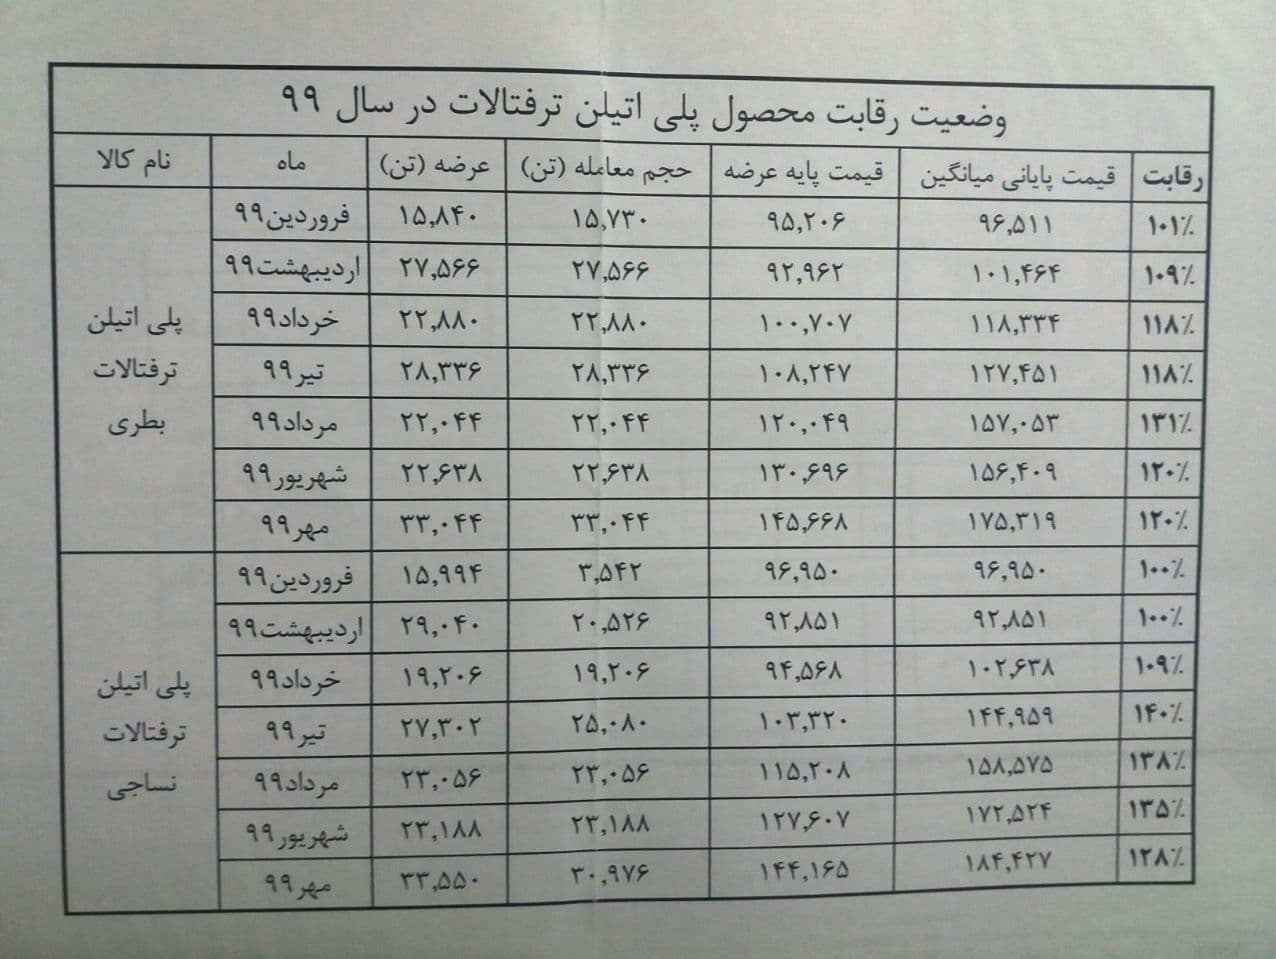 وضعیت رقابت محصول پلی اتیلن ترفتالات در سال ۹۹
نام کالا ماه عرضه (تن) حجم معامله (تن) قیمت پایه عرضه قیمت پایانی میانگین رقابت
فروردین۹۹ ۱۵,۸۴۰ ۱۵,۷۳۰ ۹۵,۲۰۶ ۹۶,۵۱۱ ۱۰۱٪
اردیبهشت۹۹ ۲۷,۵۶۶ ۲۷,۵۶۶ ۹۲,۹۶۲ ۱۰۱,۴۶۴ ۱۰۹٪
پلی اتیلن خرداد۹۹ ۲۲,۸۸۰ ۲۲,۸۸۰ ۱۰۰,۷۰۷ ۱۱۸,۳۳۴ ۱۱۸٪
ترفتالات تیر۹۹ ۲۸,۳۳۶ ۲۸,۳۳۶ ۱۰۸,۲۴۷ ۱۲۷,۴۵۱ ۱۱۸٪
بطری مرداد۹۹ ۲۲,۰۴۴ ۲۲,۰۴۴ ۱۲۰,۰۴۹ ۱۵۷,۰۵۳ ۱۳۱٪
شهریور۹۹ ۲۲,۶۳۸ ۲۲,۶۳۸ ۱۳۰,۶۹۶ ۱۵۶,۴۰۹ ۱۲۰٪
مهر۹۹ ۳۳,۰۴۴ ۳۳,۰۴۴ ۱۴۵,۶۶۸ ۱۷۵,۳۱۹ ۱۲۰٪
فروردین۹۹ ۱۵,۹۹۴ ۳,۵۴۲ ۹۶,۹۵۰ ۹۶,۹۵۰ ۱۰۰٪
اردیبهشت۹۹ ۲۹,۰۴۰ ۲۰,۵۲۶ ۹۲,۸۵۱ ۹۲,۸۵۱ ۱۰۰٪
پلی اتیلن خرداد۹۹ ۱۹,۲۰۶ ۱۹,۲۰۶ ۹۴,۵۶۸ ۱۰۲,۶۳۸ ۱۰۹٪
ترفتالات تیر۹۹ ۲۷,۳۰۲ ۲۵,۰۸۰ ۱۰۳,۳۲۰ ۱۴۴,۹۵۹ ۱۴۰٪
نساجی مرداد۹۹ ۲۳,۰۵۶ ۲۳,۰۵۶ ۱۱۵,۲۰۸ ۱۵۸,۵۷۵ ۱۳۸٪
شهریور۹۹ ۲۳,۱۸۸ ۲۳,۱۸۸ ۱۲۷,۶۰۷ ۱۷۲,۵۲۴ ۱۳۵٪
مهر۹۹ ۳۳,۵۵۰ ۳۰,۹۷۶ ۱۴۴,۱۶۵ ۱۸۴,۴۲۷ ۱۲۸٪